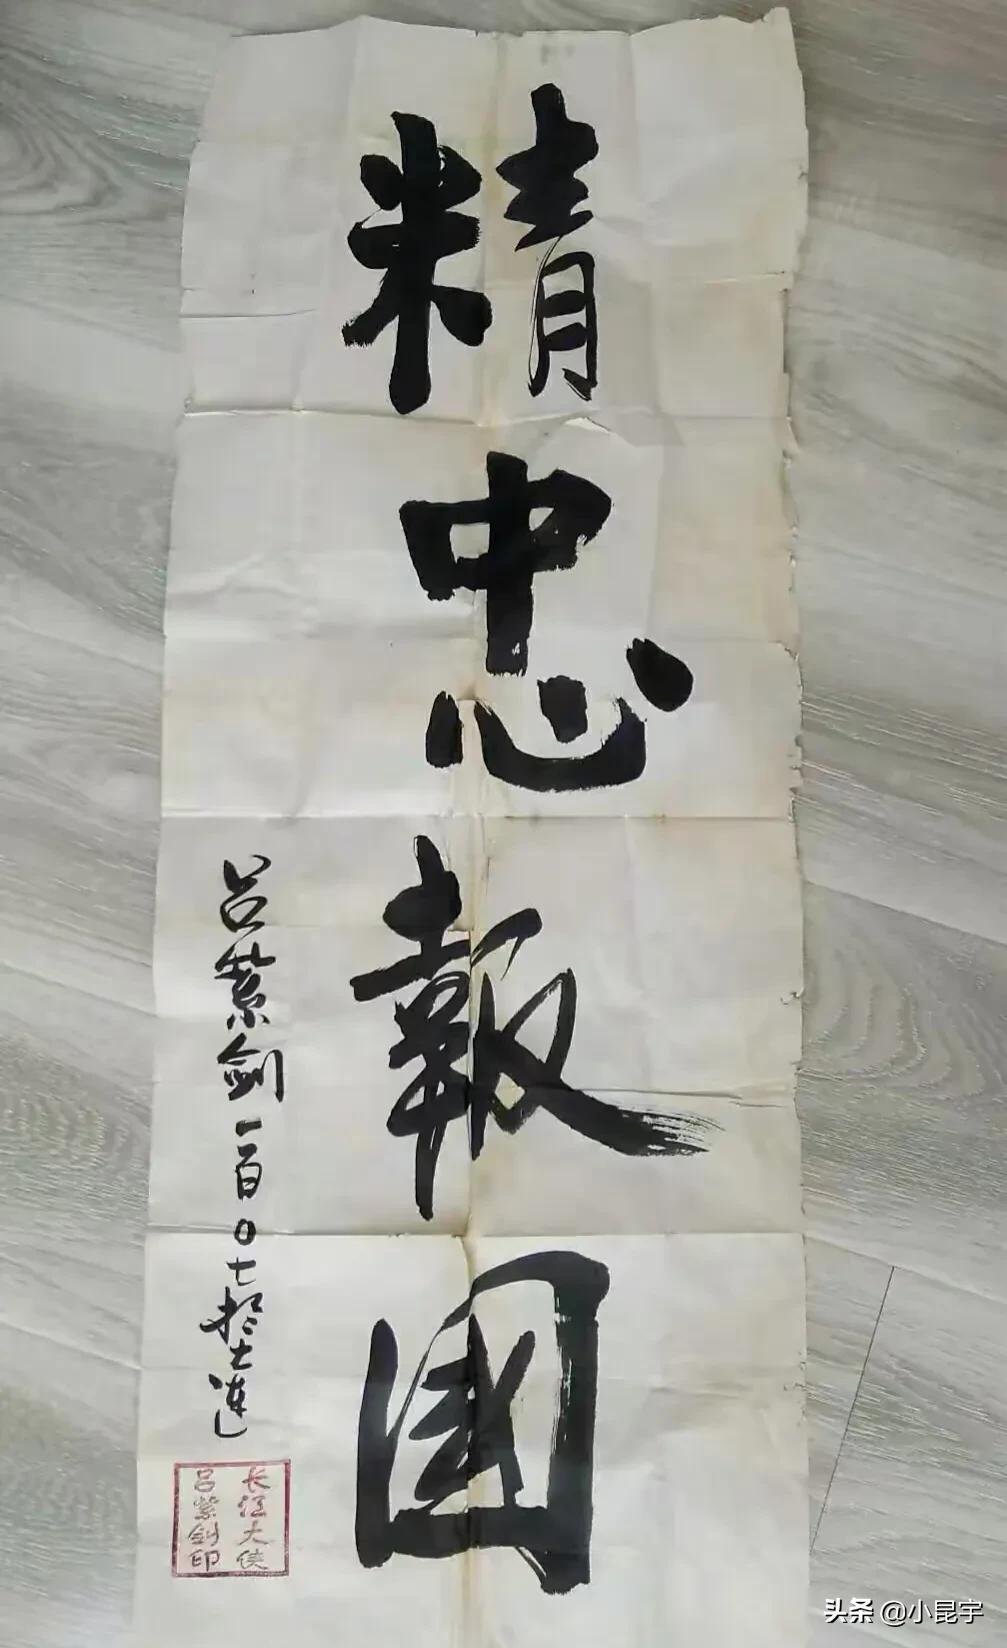 精忠報國
吕紫剑一百〇七於大连
长江大侠
吕紫剑印
头条 @小昆宇